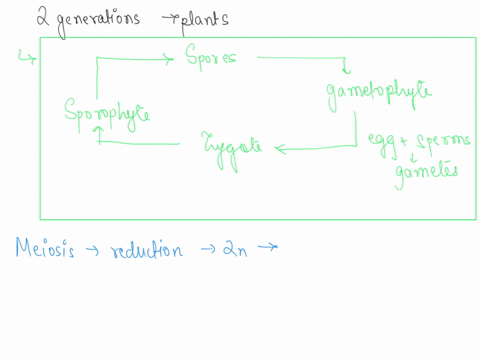 2 generations → plants
↳ Spores
gametophyte
Sporophyte
egg + sperms
Zygote
gametes
Meiosis → reduction → 2n →